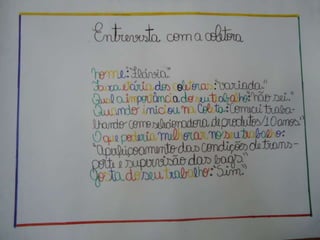 Entrevista com a coletora
nome: "Flávia"
Faixa etária dos coletoras: "variada."
Qual a importância do seu trabalho: "não sei."
Quando iniciou na Coleta: "Comecei traba-
lhando como selecionadora de produtos/10 anos."
O que poderia melhorar no seu trabalho:
"Aperfeiçoamento das condições de trans-
porte e supervisão das bags"
Gosta do seu trabalho: "Sim."